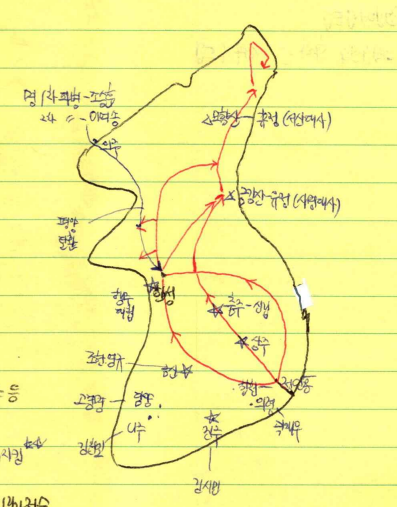 명 1차 파병 - 조승훈
2차 〃 - 이여송
의주
△묘향산 - 휴정 (서산대사)
금강산 - 유정 (사명대사)
평양
탈환
행주
대첩
한성
충주 - 신립
상주
조헌
금산
고경명
담양
나주
김천일
진주
김시민
의령
곽재우